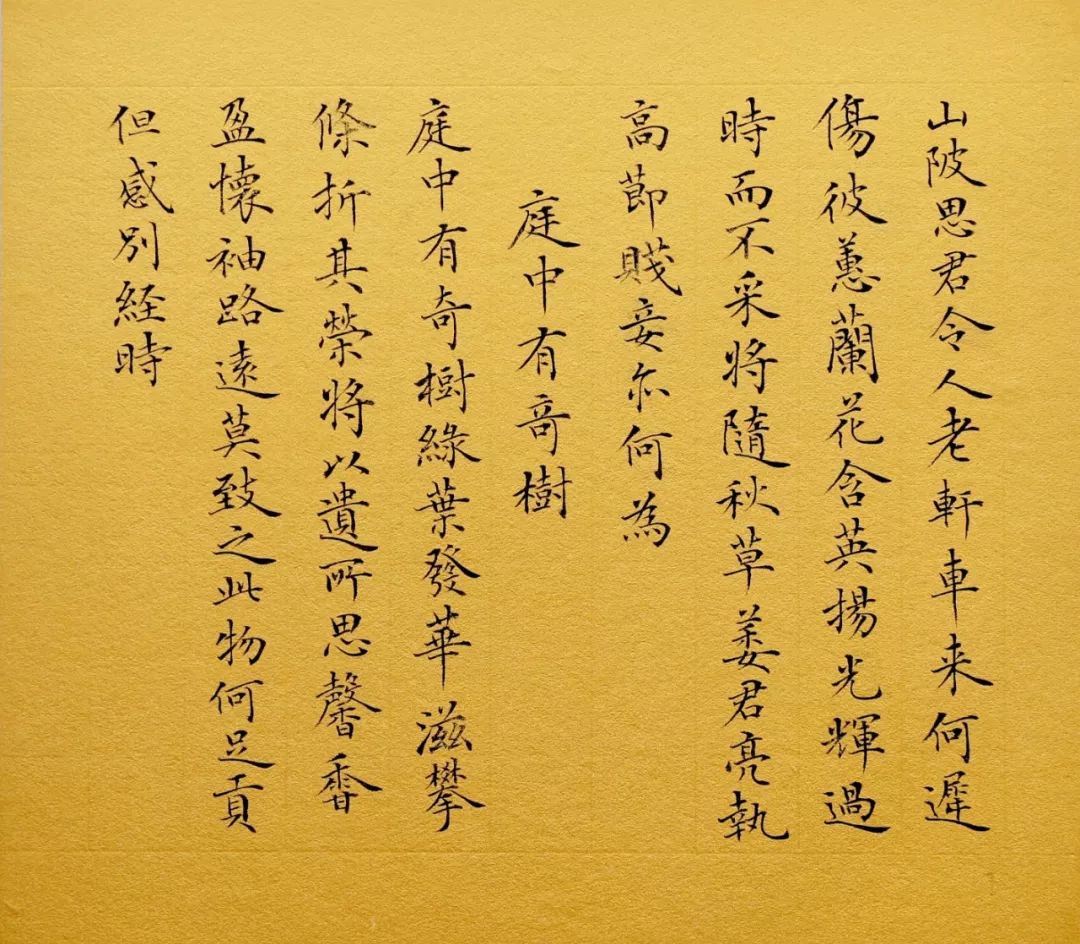 山陂思君令人老軒車来何遲
傷彼蕙蘭花含英揚光輝過
時而不采將隨秋草萎君亮執
高節賤妾亦何為
庭中有奇樹
庭中有奇樹緑葉發華滋攀
條折其榮將以遺所思馨香
盈懷袖路遠莫致之此物何足貢
但感別経時